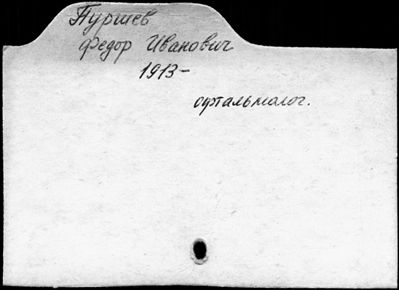 Пуршев
Федор Иванович
1913-
офтальмолог.